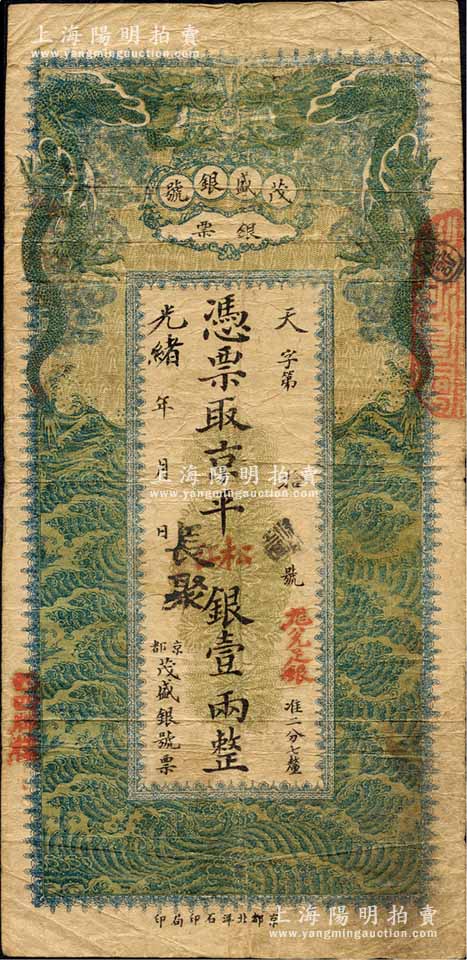 上海陽明拍賣
www.yangmingauction.com
茂盛銀號
銀票
天字第
號
准二分七釐
憑票取京平松江銀壹兩整
長聚
光緒 年 月 日
京都茂盛銀號票
京都北洋石印局印
上海陽明拍賣
www.yangmingauction.com
上海陽明拍賣
www.yangmingauction.com